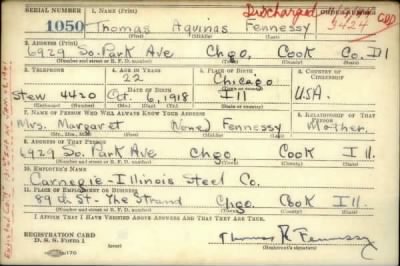 SERIAL NUMBER 1. NAME (Print) Discharged
1050 Thomas Aquinas Fennessy 3424 CDD
2. ADDRESS (Print)
6929 So. Park Ave Chgo, Cook Co. Ill
(Number and street or R. F. D. number) (Town) (County) (State)
3. TELEPHONE 4. AGE IN YEARS 5. PLACE OF BIRTH 6. COUNTRY OF CITIZENSHIP
22 Chicago
DATE OF BIRTH
Stew 4420 Oct. 6, 1918 Ill USA.
7. NAME OF PERSON WHO WILL ALWAYS KNOW YOUR ADDRESS 8. RELATIONSHIP OF THAT PERSON
Mrs. Margaret (None) Fennessy Mother.
9. ADDRESS OF THAT PERSON
6929 So. Park Ave Chgo, Cook Ill.
(Number and street or R. F. D. number) (Town) (County) (State)
10. EMPLOYER'S NAME
Carnegie-Illinois Steel Co.
11. PLACE OF EMPLOYMENT OR BUSINESS
89th St - The Strand Chgo. Cook Ill.
(Number and street or R. F. D. number) (Town) (County) (State)
I AFFIRM THAT I HAVE VERIFIED ABOVE ANSWERS AND THAT THEY ARE TRUE.
REGISTRATION CARD
D. S. S. Form 1 Thomas A Fennessy
(Registrant's signature)